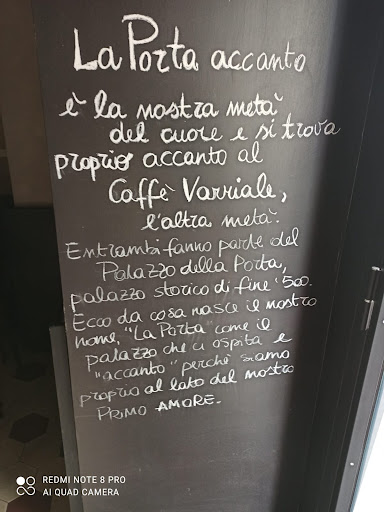 La Porta accanto
è la nostra metà
del cuore e si trova
proprio accanto al
Caffè Varriale,
l'altra metà.
Entrambi fanno parte del
Palazzo della Porta,
palazzo storico di fine '500.
Ecco da cosa nasce il nostro
nome, "La Porta" come il
palazzo che ci ospita e
"accanto" perchè siamo
proprio al lato del nostro
PRIMO AMORE.
REDMI NOTE 8 PRO
AI QUAD CAMERA